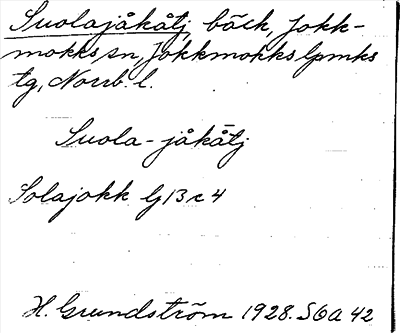 Suolajåkåtj, bäck, Jokk-
mokks sn, Jokkmokks lpmks
tg, Norrb. l.
Suola-jåkåtj
Solajokk lg 13 c 4
H. Grundström 1928. S6a 42